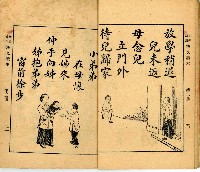 放學稍遲
兒未返
母念兒
立門外
待兒歸家
小弟弟
在母懷
見姊來
伸手向姊
姊抱弟弟
窗前徐步